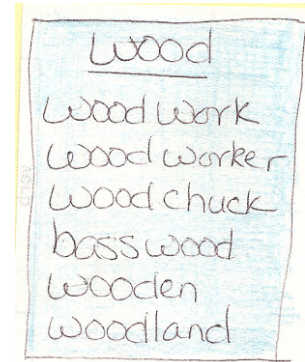 wood
wood work
wood worker
wood chuck
bass wood
wooden
woodland